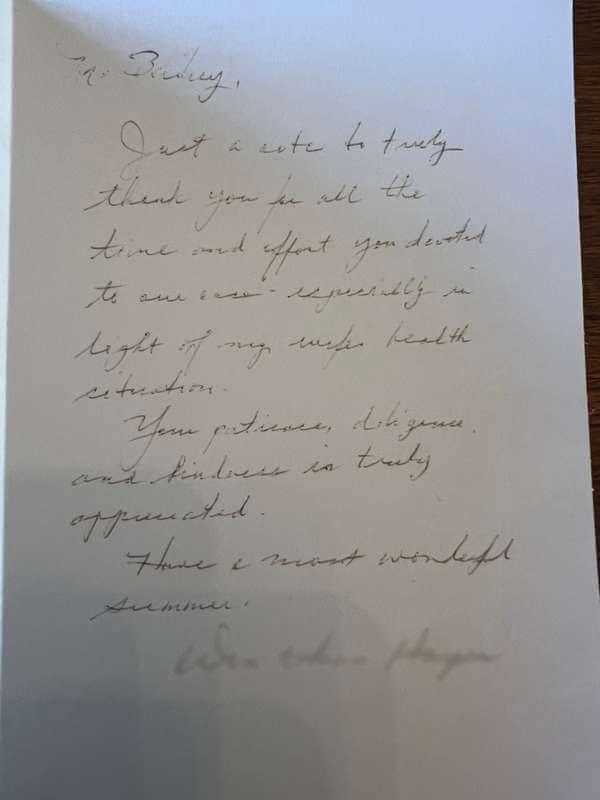 Just a note to truly
thank you for all the
time and effort you devoted
to our case - especially in
light of my wife's health
situation.
Your patience, diligence,
and kindness is truly
appreciated.
Have a most wonderful
summer.